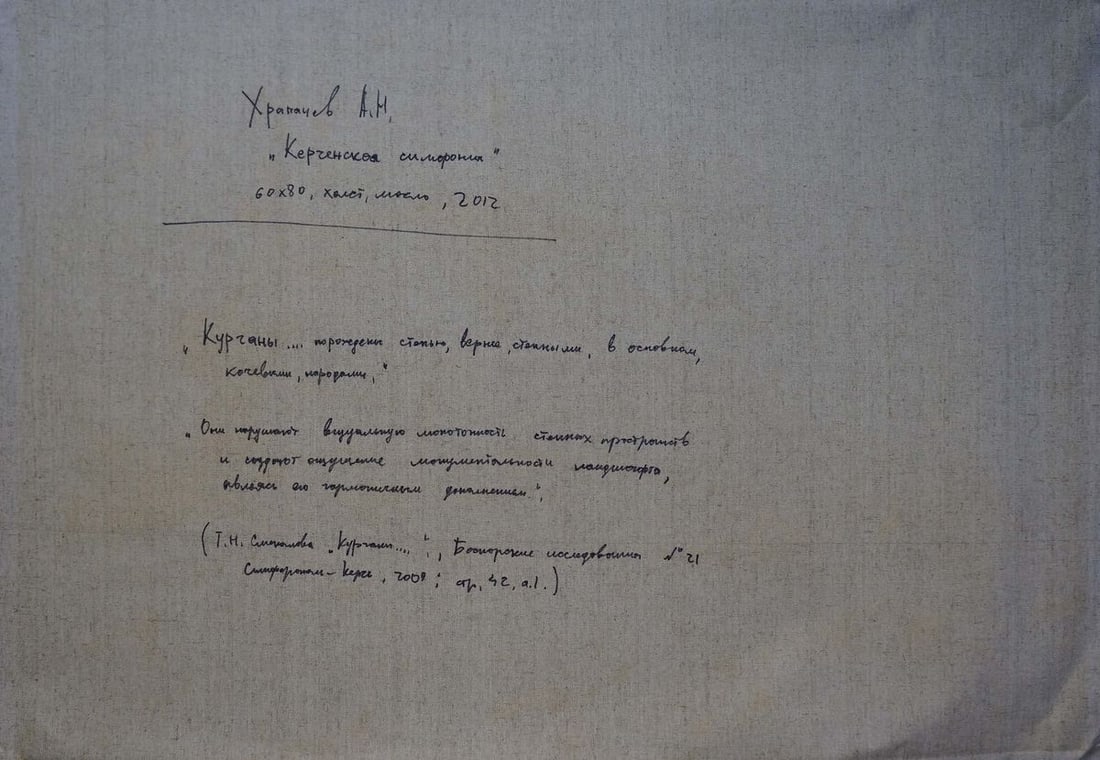 Храпачев А.Н.
„Керченская симфония"
60х80, холст, масло, 2012
„Курганы.... порождены степью, вернее, степными, в основном,
кочевыми, народами."
„Они нарушают визуальную монотонность степных пространств
и создают ощущение монументальности ландшафта,
являясь его гармоничным дополнением."
(Т.Н. Смекалова „Курганы....", Боспорские исследования №21
Симферополь-Керчь, 2009; стр. 42, а.1.)